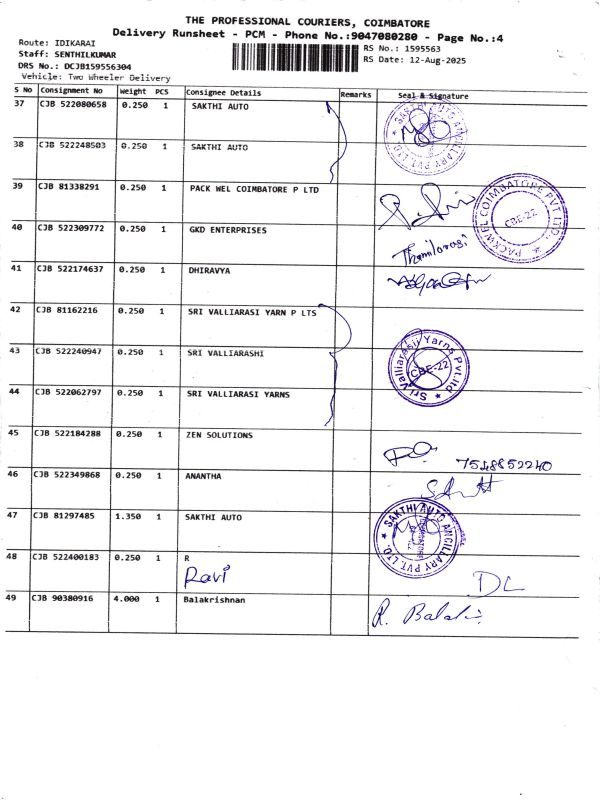 THE PROFESSIONAL COURIERS, COIMBATORE
Delivery Runsheet - PCM - Phone No.:9047080280 - Page No.:4
Route: IDIKARAI
Staff: SENTHILKUMAR
DRS No.: DCJB159556304
Vehicle: Two Wheeler Delivery
RS No.: 1595563
RS Date: 12-Aug-2025
S No Consignment No Weight PCS Consignee Details Remarks Seal & Signature
37 CJB 522080658 0.250 1 SAKTHI AUTO
SAKTHI AUTO ANCILLARY PVT. LTD.
38 CJB 522248503 0.250 1 SAKTHI AUTO
39 CJB 81338291 0.250 1 PACK WEL COIMBATORE P LTD
PACKWEL COIMBATORE PVT LTD. CBE-22
40 CJB 522309772 0.250 1 GKD ENTERPRISES
Thamilarasi
41 CJB 522174637 0.250 1 DHIRAVYA
42 CJB 81162216 0.250 1 SRI VALLIARASI YARN P LTS
43 CJB 522240947 0.250 1 SRI VALLIARASHI
Sri Valliarasi Yarns Pvt.Ltd. CBE-22
44 CJB 522062797 0.250 1 SRI VALLIARASI YARNS
45 CJB 522184288 0.250 1 ZEN SOLUTIONS
7548852240
46 CJB 522349868 0.250 1 ANANTHA
47 CJB 81297485 1.350 1 SAKTHI AUTO
SAKTHI AUTO ANCILLARY PVT. LTD.
48 CJB 522400183 0.250 1 R
Ravi
DL
49 CJB 90380916 4.000 1 Balakrishnan